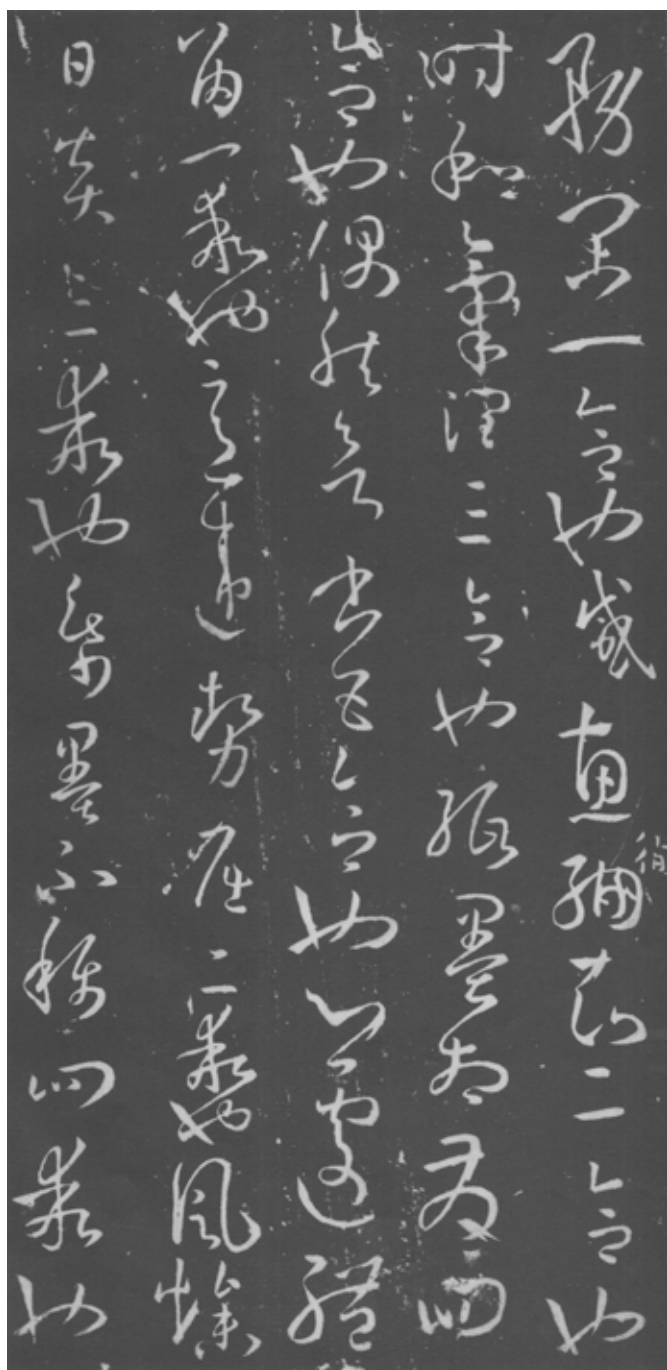 務閑一合也感惠徇知二合也
時和氣潤三合也紙墨相發四
合也偶然欲書五合也心遽體
留一乖也意違勢屈二乖也風燥
日炎三乖也紙墨不稱四乖也